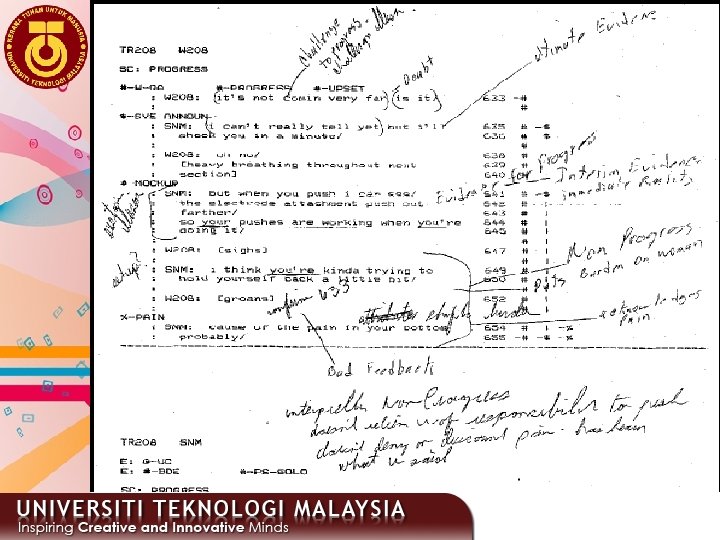 KERANA TUHAN UNTUK MANUSIA
UNIVERSITI TEKNOLOGI MALAYSIA
challenge to progress
ultimate Evidence
TR208 W208
SC: PROGRESS
#-W-QA #-PROGRESS #-UPSET
Doubt
: W208: (it's not comin very far (is it) 633 -#
#-GVE ANNOUN
: SNM: (i can't really tell yet) but i'll 635 # -$
: check you in a minute/ 636 # $
: W208: oh no/ 638 #
: [heavy breathing throughout next 639 #
: section] 640 #
Evidence for Progress
Interim Evidence
immediate
#-MOCKUP
: SNM: but when you push i can see/ 641 # -$
: the electrode attachment push out
: farther/ 643 #
: so your pushes are working when you're 644 #
: doing it/ 645 #
: W208: [sighs] 647 #
Non Progress
puts burden on woman
: SNM: i think you're kinda trying to 649 #
: hold yourself back a little bit/ 650 #
: W208: [groans] 652 #
confirm 633
acknowledges pain
%-PAIN
: SNM: cause of the pain in your bottom 654
: probably/ 655 -# -$ -%
Bad Feedback
Non Progress
responsibility to push
doesn't deny or discount pain. has been
what is said
TR208 SNM
E: G-UC
E: #-BDE #-PS-GOLO
SC: PROGRESS
UNIVERSITI TEKNOLOGI MALAYSIA
Inspiring Creative and Innovative Minds